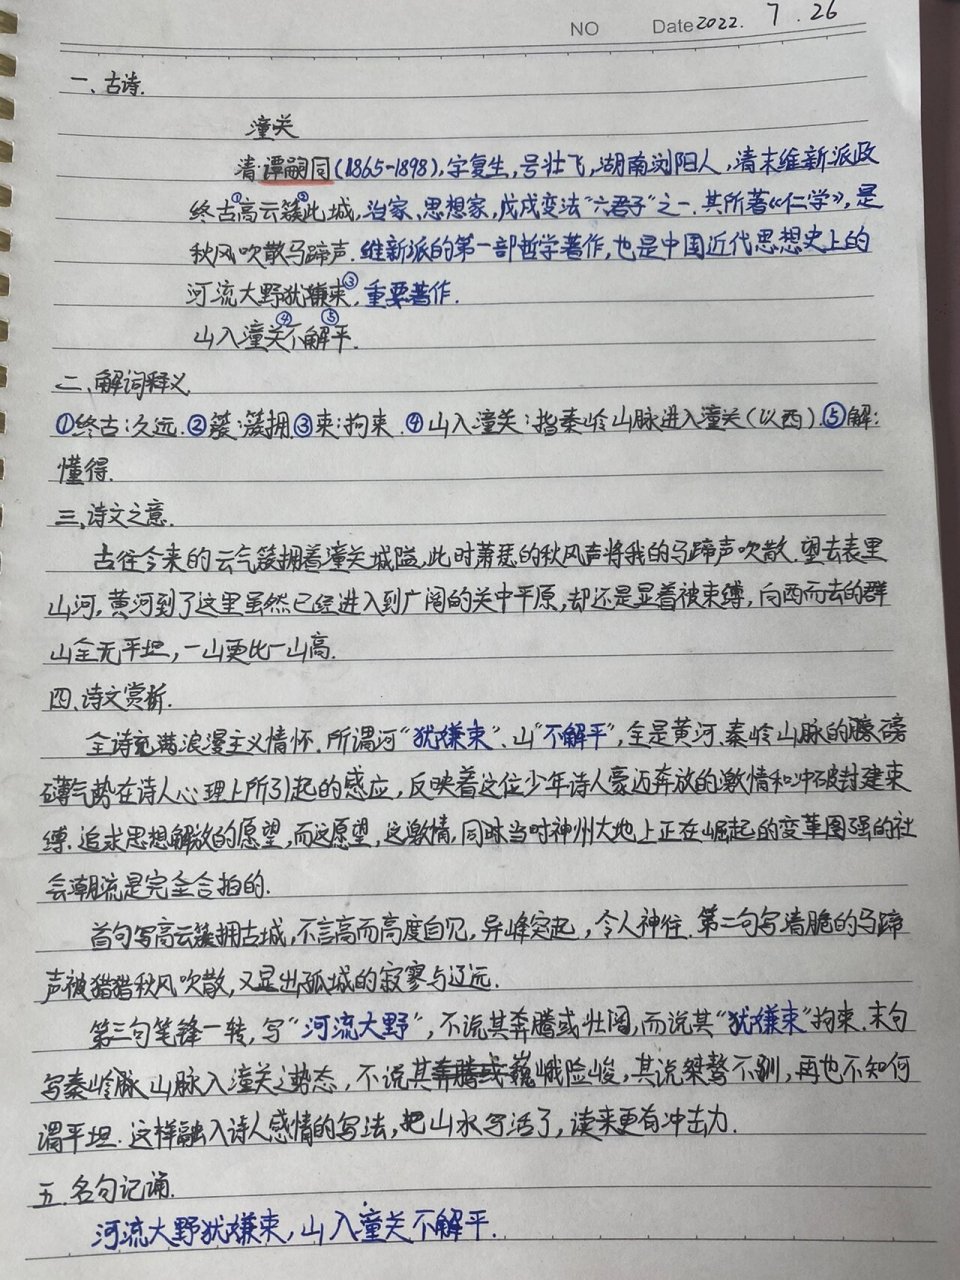 NO Date 2022. 7. 26
一、古诗.
潼关
清·谭嗣同(1865-1898),字复生,号壮飞,湖南浏阳人,清末维新派政
终古①高云簇②此城,治家、思想家,戊戌变法“六君子”之一.其所著《仁学》,是
秋风吹散马蹄声.维新派的第一部哲学著作,也是中国近代思想史上的
河流大野犹嫌束③,重要著作.
山入潼关④不解⑤平.
二、解词释义
①终古:久远.②簇:簇拥③束:拘束.④山入潼关:指秦岭山脉进入潼关(以西).⑤解:
懂得.
三.诗文之意.
古往今来的云气簇拥着潼关城隘,此时萧瑟的秋风声将我的马蹄声吹散.望去表里
山河,黄河到了这里虽然已经进入到广阔的关中平原,却还是显着被束缚,向西而去的群
山全无平坦,一山更比一山高.
四.诗文赏析.
全诗充满浪漫主义情怀.所谓河“犹嫌束”、山“不解平”,全是黄河、秦岭山脉的磅
礴气势在诗人心理上所引起的感应,反映着这位少年诗人豪迈奔放的激情和冲破封建束
缚.追求思想解放的愿望,而这愿望,这激情,同时当时神州大地上正在崛起的变革图强的社
会潮流是完全合拍的.
首句写高云簇拥古城,不言高而高度自见,异峰突起,令人神往.第二句写清脆的马蹄
声被猎猎秋风吹散,又显出孤城的寂寥与辽远.
第三句笔锋一转,写“河流大野”,不说其奔腾或壮阔,而说其“犹嫌束”拘束.末句
写秦岭脉山脉入潼关之势态,不说其奔腾或巍峨险峻,其说桀骜不驯,再也不知何
谓平坦.这样融入诗人感情的写法,把山水写活了,读来更有冲击力.
五.名句记诵.
河流大野犹嫌束,山入潼关不解平.